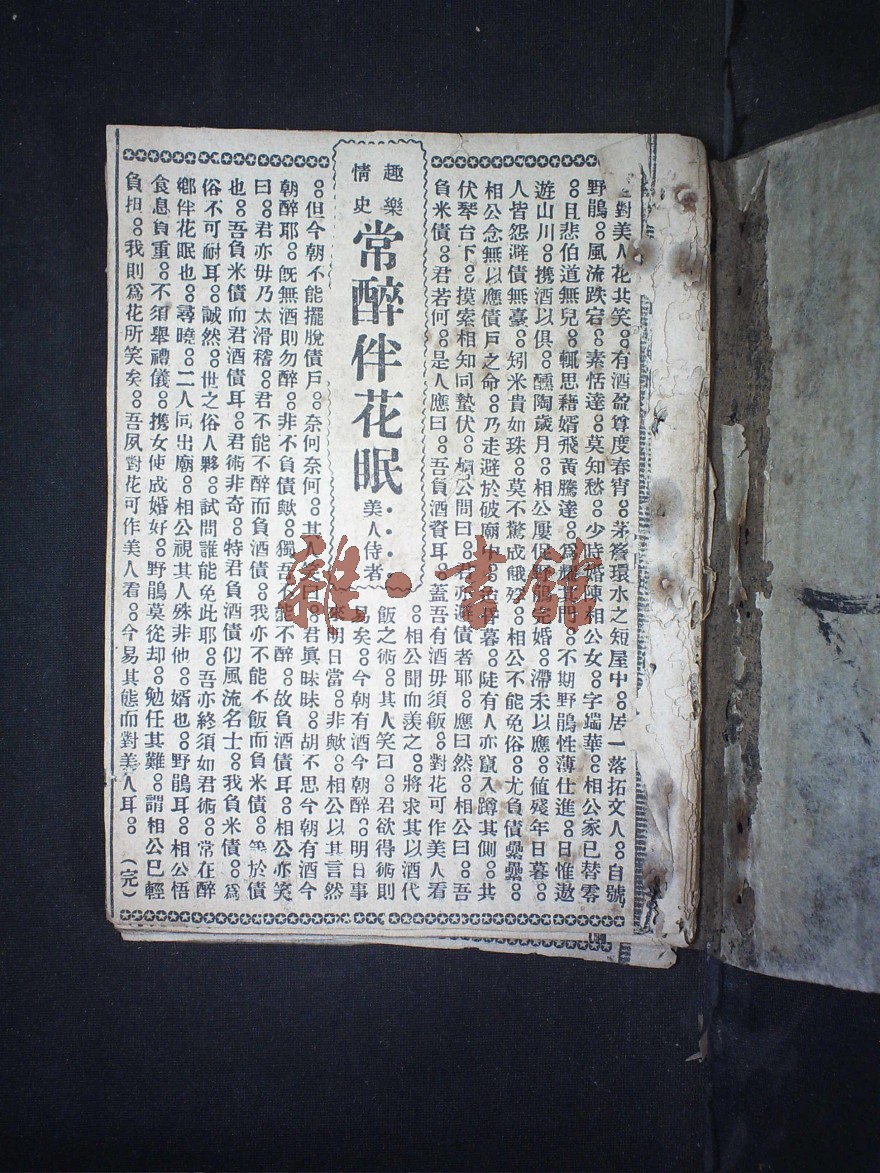 對美人花共笑。有酒盈尊度春宵。茅簷環水之短屋中。居一落拓文人。自號
野鶻。風流跌宕。素恬達。莫知愁。少時婚陳相公女。字端華。相公家已替零
。且悲伯道無兒。輒思藉婿飛黃騰達。爲耀其門。不期野鶻性薄仕進。日惟遨
遊山川。携酒以俱。醺陶歲月。相公屢促野鶻完婚。滯未以應。値殘年日暮。
人皆怨避債無臺。矧米貴如珠。莫不驚成餓殍。相公不能免俗。尤負債纍纍。
相公念無以應債戶之命。乃走避於破廟中。暮。陡有人亦竄入蹲其側。共
伏琴台下。摸索相知同蟄伏。相公問曰。君亦避債者耶。應曰然。相公曰。吾
負米債。君若何。是人應曰。吾負酒資耳。蓋吾有酒毋須飯。對花可作美人看
趣樂
情史
常醉伴花眠
美人侍者
。相公聞而羨之。將求其以酒代
飯之術。其人笑曰。君欲得術則
易矣。今朝有酒今朝醉。明日事
來明日當。非歟。相公以其言然
。但今朝不能擺脫債戶。奈何奈何。其人笑曰。君眞昧昧。胡不思今朝有酒今
朝醉耶。旣無酒則勿醉。非不負債歟。獨吾不能不醉。故負酒債耳。相公亦笑
曰。君亦毋乃太滑稽。君不能不醉而負酒債。我亦不能不飯而負米債。等於債
也。吾負米債而君酒債耳。君術非奇。特君負酒債似風流名士。我負米債。爲
俗不可耐耳。誠然。世之俗人夥。試問誰能免此耶。吾亦終須如君術。常在醉
鄉伴花眠也。尋曉。二人同出廟。相公視其人殊非他。婿也。野鶻耳。相公悟
食息負重。不須舉禮儀。携女使成婚好。野鶻莫從却。勉任其難。謂相公已輕
負担。我則爲花所笑矣。吾夙對花可作美人看。今易其態而對美人耳。（完）
雜·書館